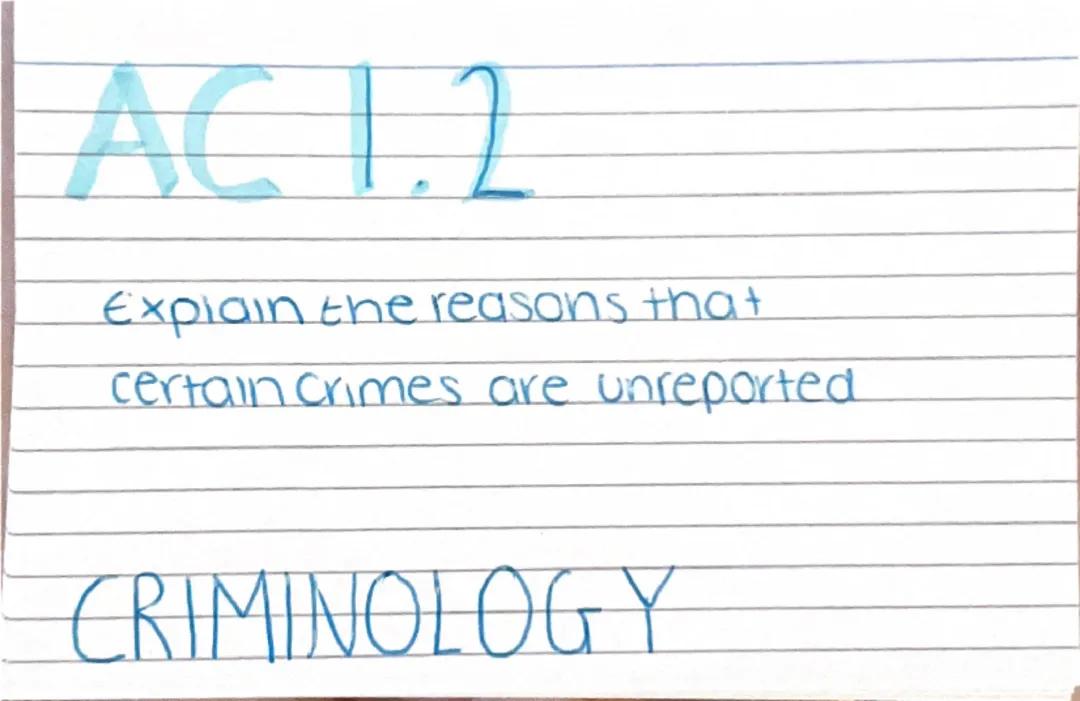 AC 1.2
Explain the reasons that
certain crimes are unreported
CRIMINOLOGY